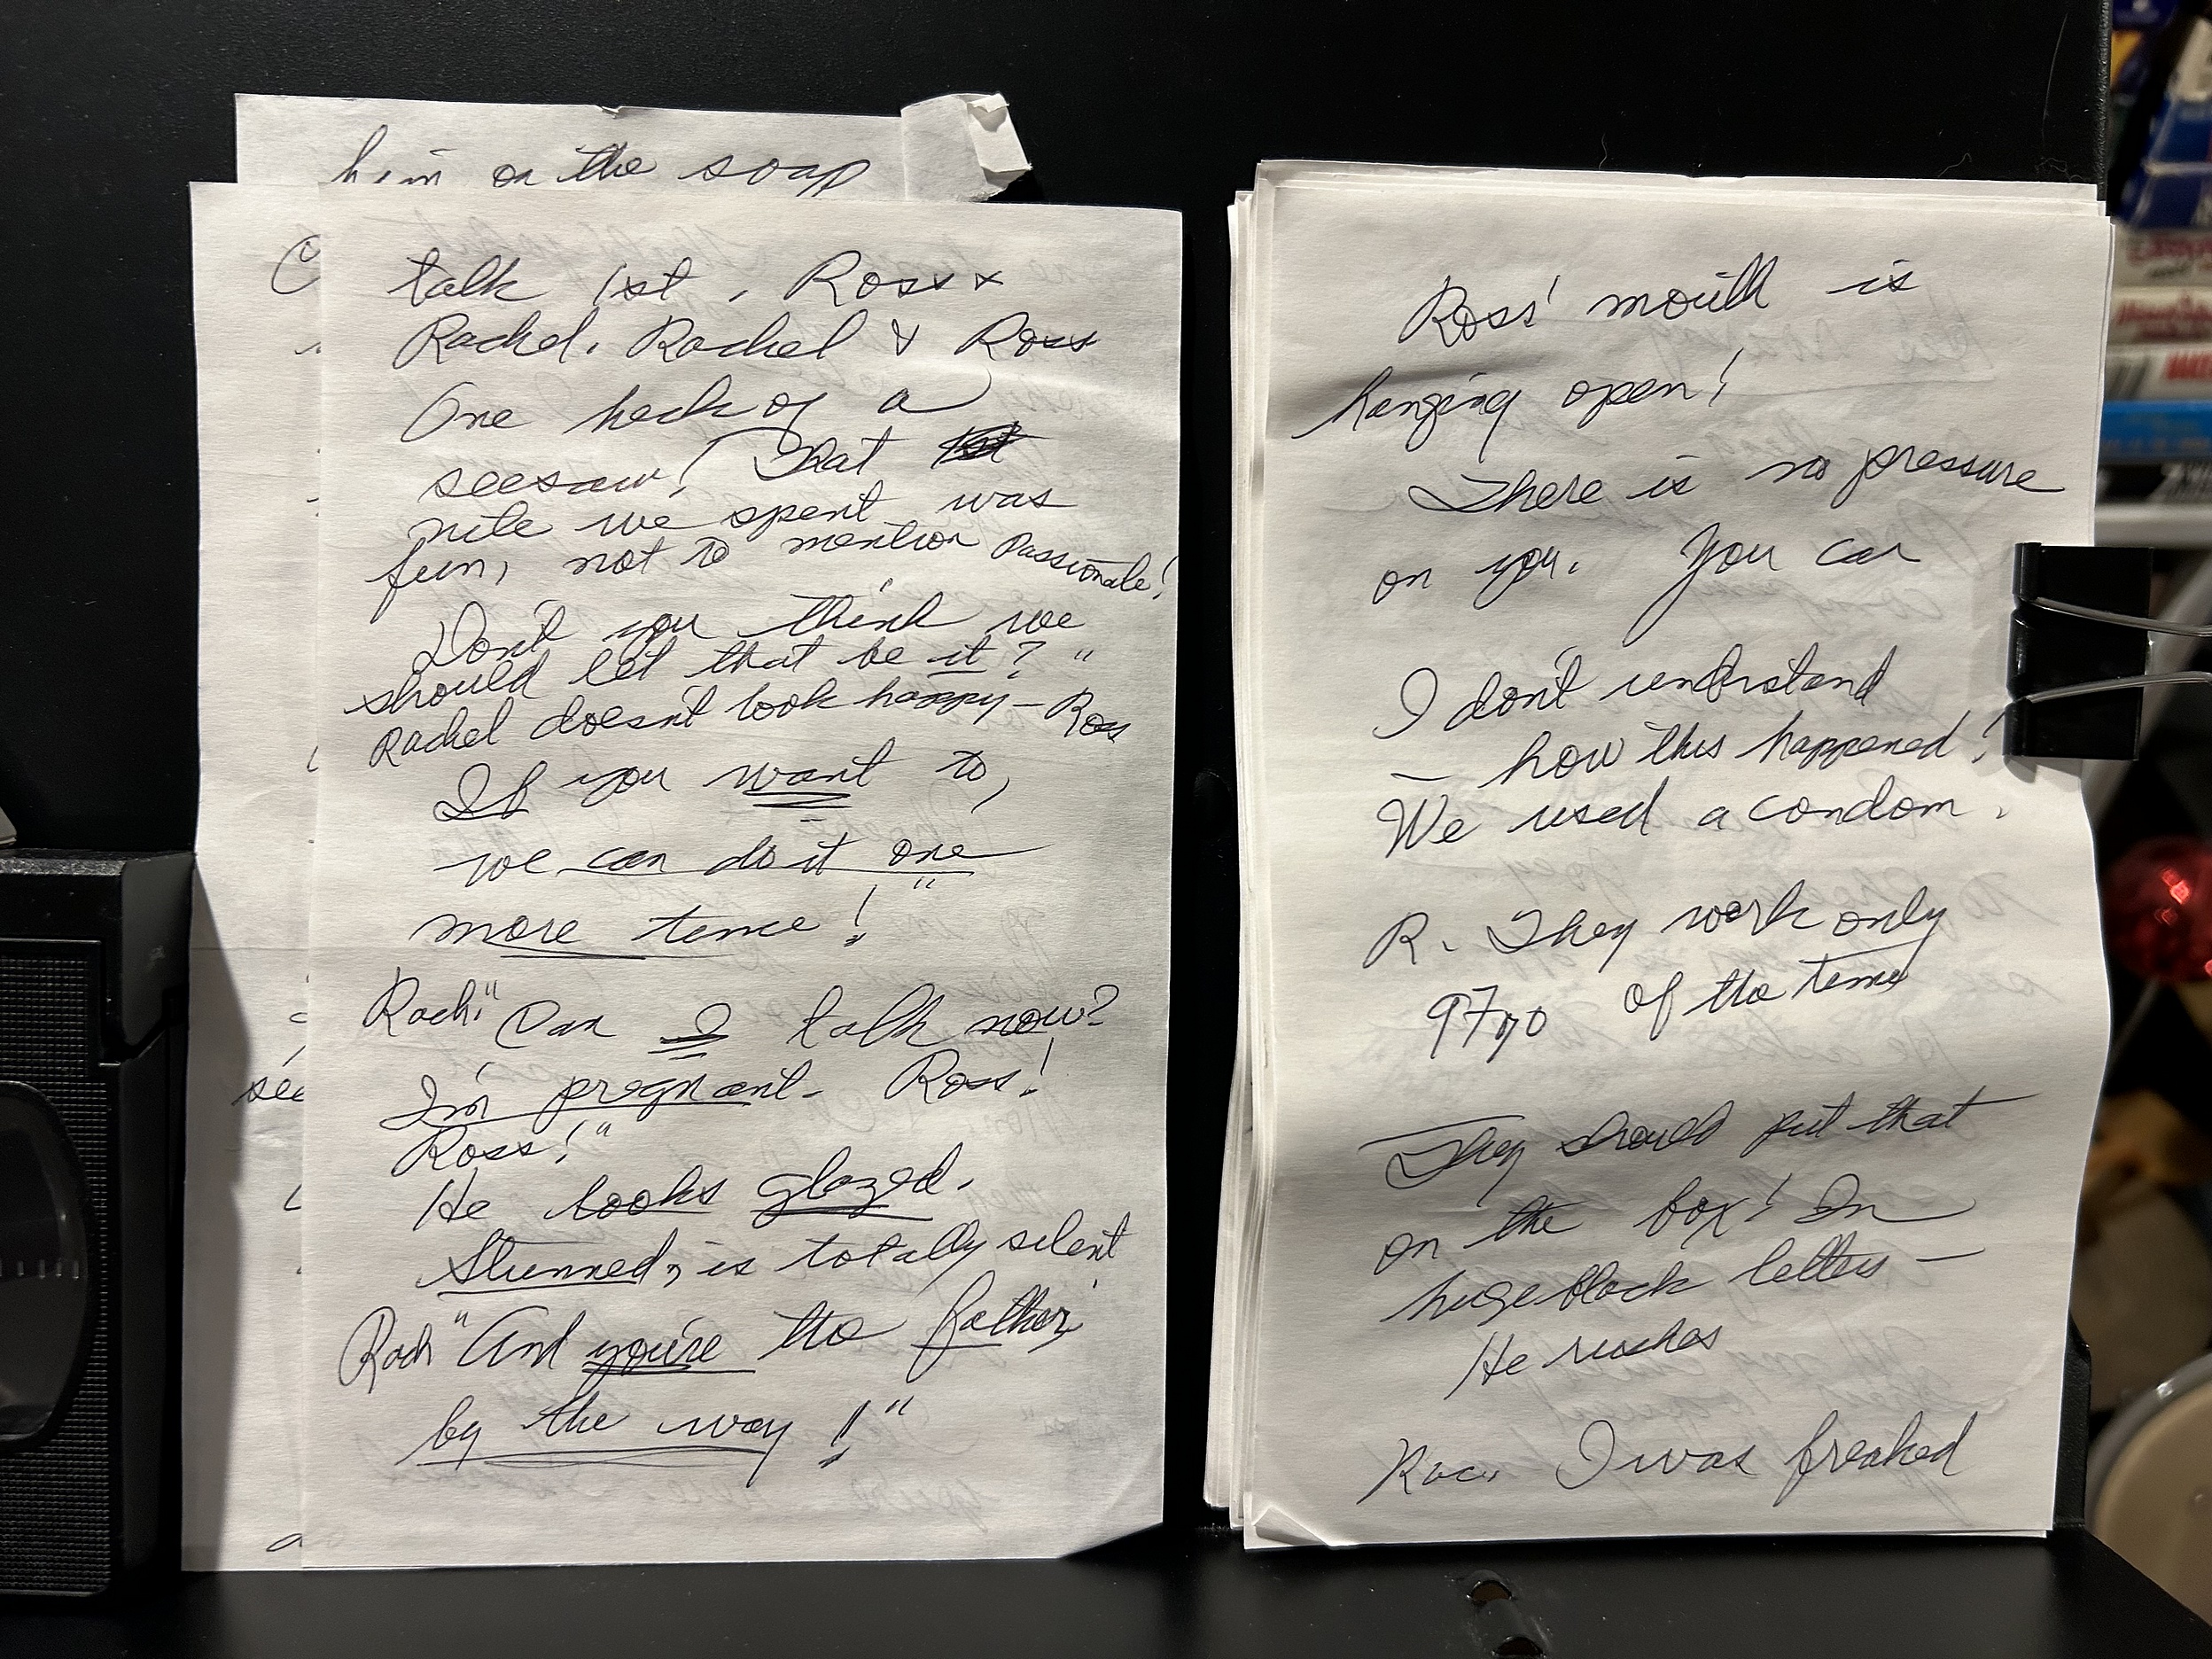 him on the soap
talk 1st. Ross &
Rachel. Rachel & Ross
One heck of a
seesaw! That
nite we spent was
fun, not to mention passionate!
Don't you think we
should let that be it? "
Rachel doesn't look happy – Ross
If you want to,
we can do it one
more time! "
Rach " Can I talk now?
I'm pregnant. Ross!
Ross! "
He looks glazed.
Stunned, is totally silent
Rach " And you're the father,
by the way !! "
Ross' mouth is
hanging open!
There is no pressure
on you. You can
I don't understand
– how this happened?
We used a condom.
R. They work only
97% of the time
They should put that
on the box! In
huge black letters –
He rushes
Rac. I was freaked